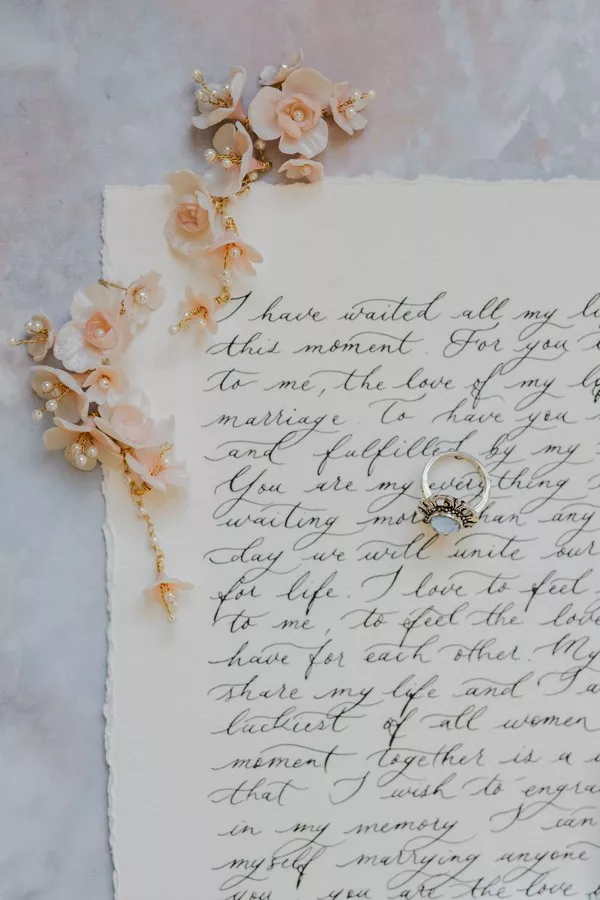 I have waited all my li
this moment. For you
to me, the love of my
marriage. To have you
and fulfilled by my
You are my everything
waiting more than any
day we will unite our
for life. I love to feel
to me, to feel the love
have for each other. My
share my life and I a
luckiest of all women
moment together is a
that I wish to engra
in my memory I can
myself marrying anyone
you, you are the love